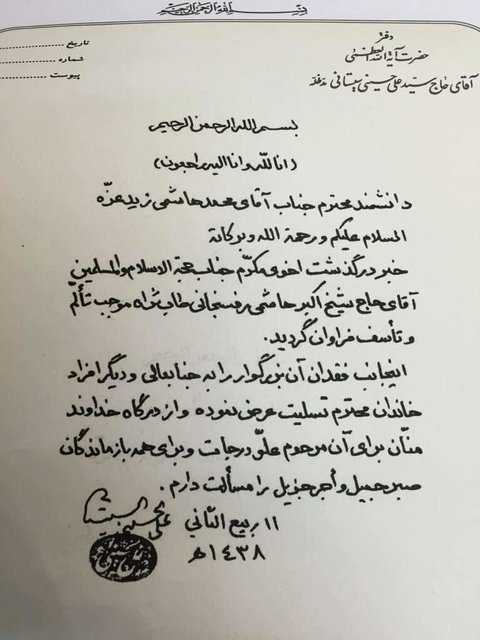 بسم الله الرحمن الرحیم
دفتر
حضرت آیة الله العظمی
آقای حاج سید علی حسینی سیستانی مدظله
تاریخ
شماره
پیوست
بسم الله الرحمن الرحیم
(انا لله وانا الیه راجعون)
دانشمند محترم جناب آقای محمد هاشمی زید عزّه
السلام علیکم ورحمة الله وبرکاته
خبر درگذشت اخوی مکرّم جناب حجة الاسلام والمسلمین
آقای حاج شیخ اکبر هاشمی رفسنجانی طاب ثراه موجب تألّم
و تأسف فراوان گردید.
اینجانب فقدان آن بزرگوار را به جنابعالی و دیگر افراد
خاندان محترم تسلیت عرض نموده و از درگاه خداوند
منّان برای آن مرحوم علوّ درجات و برای همه بازماندگان
صبر جمیل و أجر جزیل را مسألت دارم.
۱۱ ربیع الثانی
۱۴۳۸ هـ
علی الحسینی السیستانی